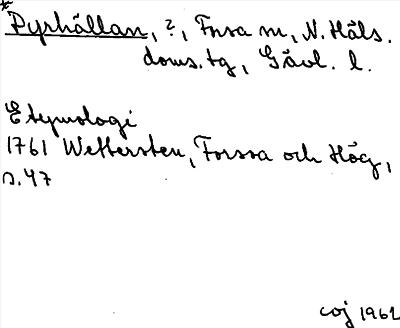 *Pyrhällan, ?, Forsa sn, N. Häls.
doms. tg, Gävl. l.
Etymologi
1761 Wettersten, Forssa och Hög,
s. 47
coj 1961